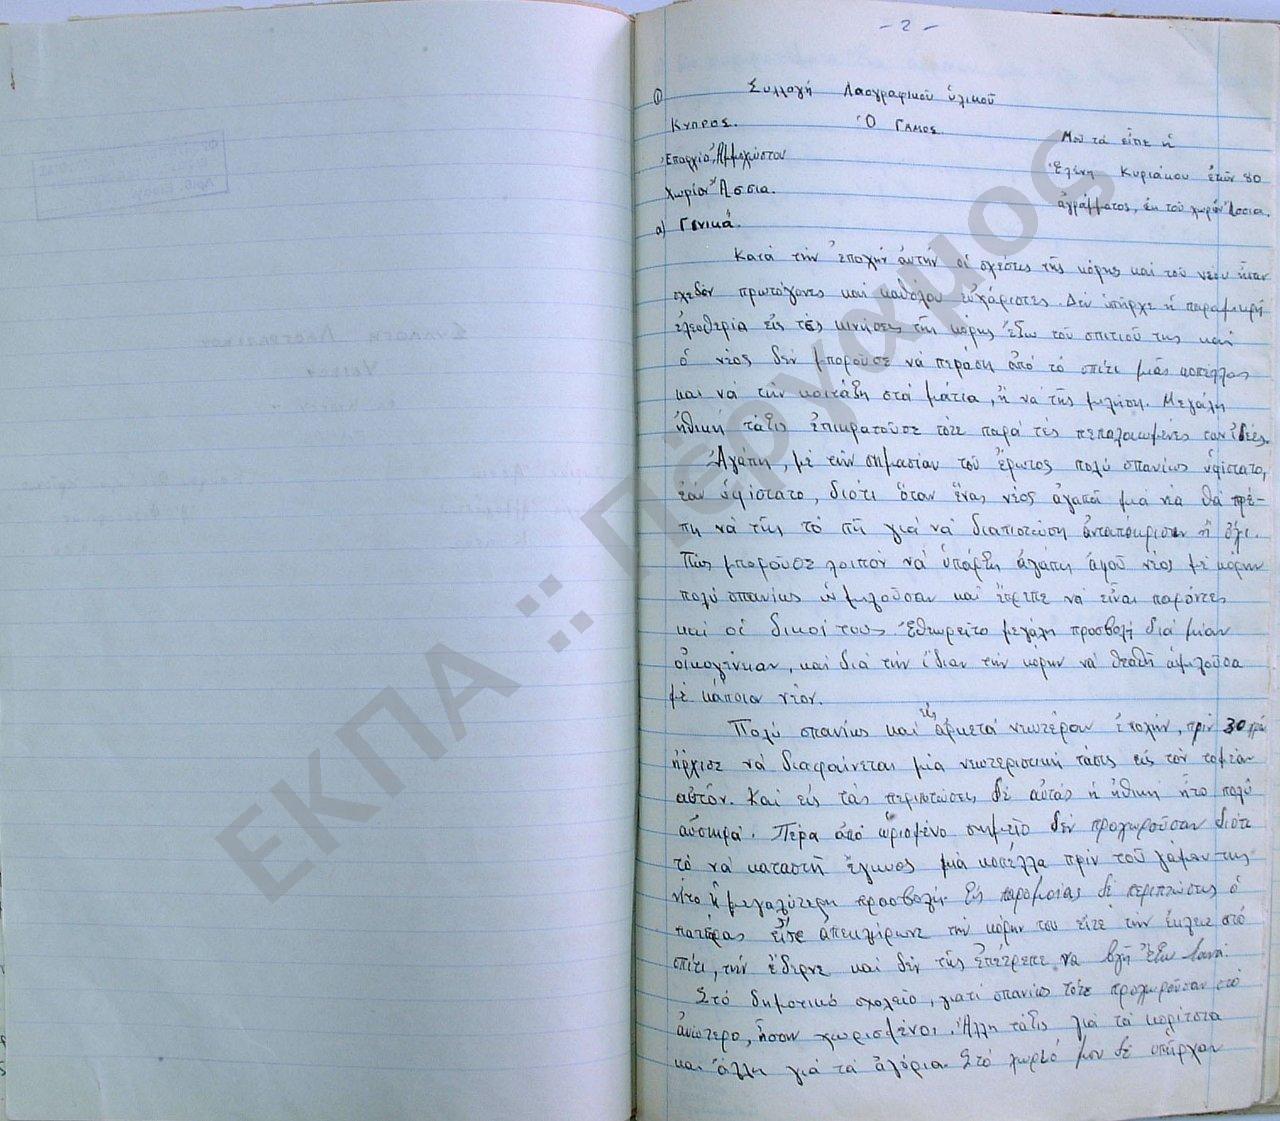 - 2 -
① Συλλογή Λαογραφικοῦ ὑλικοῦ
Κυπρος. Ὁ Γαμος
Μοῦ τά εἶπε ἡ
Ἐπαρχία Ἀμμοχώστου
Ἑλένη Κυριάκου ἐτῶν 80
Χωρίον Ἄσσια.
ἀγράμματος, ἐκ τοῦ χωρίου Ἄσσια.
α) Γενικά.
Κατά τήν ἐποχήν αὐτήν οἱ σχέσεις τῆς κόρης καί τοῦ νέου ἦταν
σχεδόν πρωτόγονες καί καθόλου εὐχάριστες. Δέν ὑπῆρχε ἡ παραμικρή
ἐλευθερία εἰς τές κινήσεις τῆς κόρης ἔξω τοῦ σπιτιοῦ της καί
ὁ νέος δέν μποροῦσε νά περάση ἀπό τό σπίτι μιᾶς κοπέλλας
και νά τήν κοιτάξη στά μάτια, ἤ νά τῆς μιλήση. Μεγάλη
ἠθική τάξις ἐπικρατοῦσε τότε παρά τές πεπαλαιωμένες των ἰδέες.
Ἀγάπη, μέ τήν σημασίαν τοῦ ἔρωτος πολύ σπανίως ὑφίστατο,
ἐάν ὑφίστατο, διότι ὅταν ἕνας νέος ἀγαπᾶ μιά νέα θά πρέ-
πη νά τῆς τό πῆ γιά νά διαπιστώση ἀνταπόκρισιν ἤ ὄχι.
Πῶς μποροῦσε λοιπόν νά ὑπάρξη ἀγάπη ἀφοῦ νέος μέ κόρην
πολύ σπανίως ὡμιλοῦσαν καί ἔπρεπε νά εἶναι παρόντες
καί οἱ δικοί τους. Ἐθεωρεῖτο μεγάλη προσβολή διά μίαν
οἰκογένειαν, καί διά τήν ἰδίαν τήν κόρην νά θεαθῆ ὁμιλοῦσα
μέ κάποιον νέον.
Πολύ σπανίως καί εἰς ἀρκετά νεωτέραν ἐποχήν, πρίν 30
ἤρχισε νά διαφαίνεται μία νεωτεριστική τάσις εἰς τόν τομέαν
αὐτόν. Καί εἰς τάς περιπτώσεις δέ αὐτάς ἡ ἠθική ἦτο πολύ
αὐστηρά. Πέρα ἀπό ὡρισμένο σημεῖο δέν προχωροῦσαν διότι
τό νά καταστῆ ἔγκυος μιά κοπέλλα πρίν τοῦ γάμου της
ἦτο ἡ μεγαλύτερη προσβολή. Εἰς παρομοίας δέ περιπτώσεις ὁ
πατέρας εἴτε ἀπεκλήρωνε τήν κόρην του εἴτε τήν ἔκλειε στό
σπίτι, τήν ἔδερνε καί δέν τῆς ἐπέτρεπε να βγῆ ἔξω ξανά.
Στό δημοτικό σχολεῖο, γιατί σπανίως τότε προχωροῦσαν στό
ἀνώτερο, ἦσαν χωρισμένοι. Ἄλλη τάξις γιά τά κορίτσια
και ἄλλη γιά τά ἀγόρια. Στό χωριό μου δέ ὑπῆρχαν
ΕΚΠΑ :: Πέργαμος